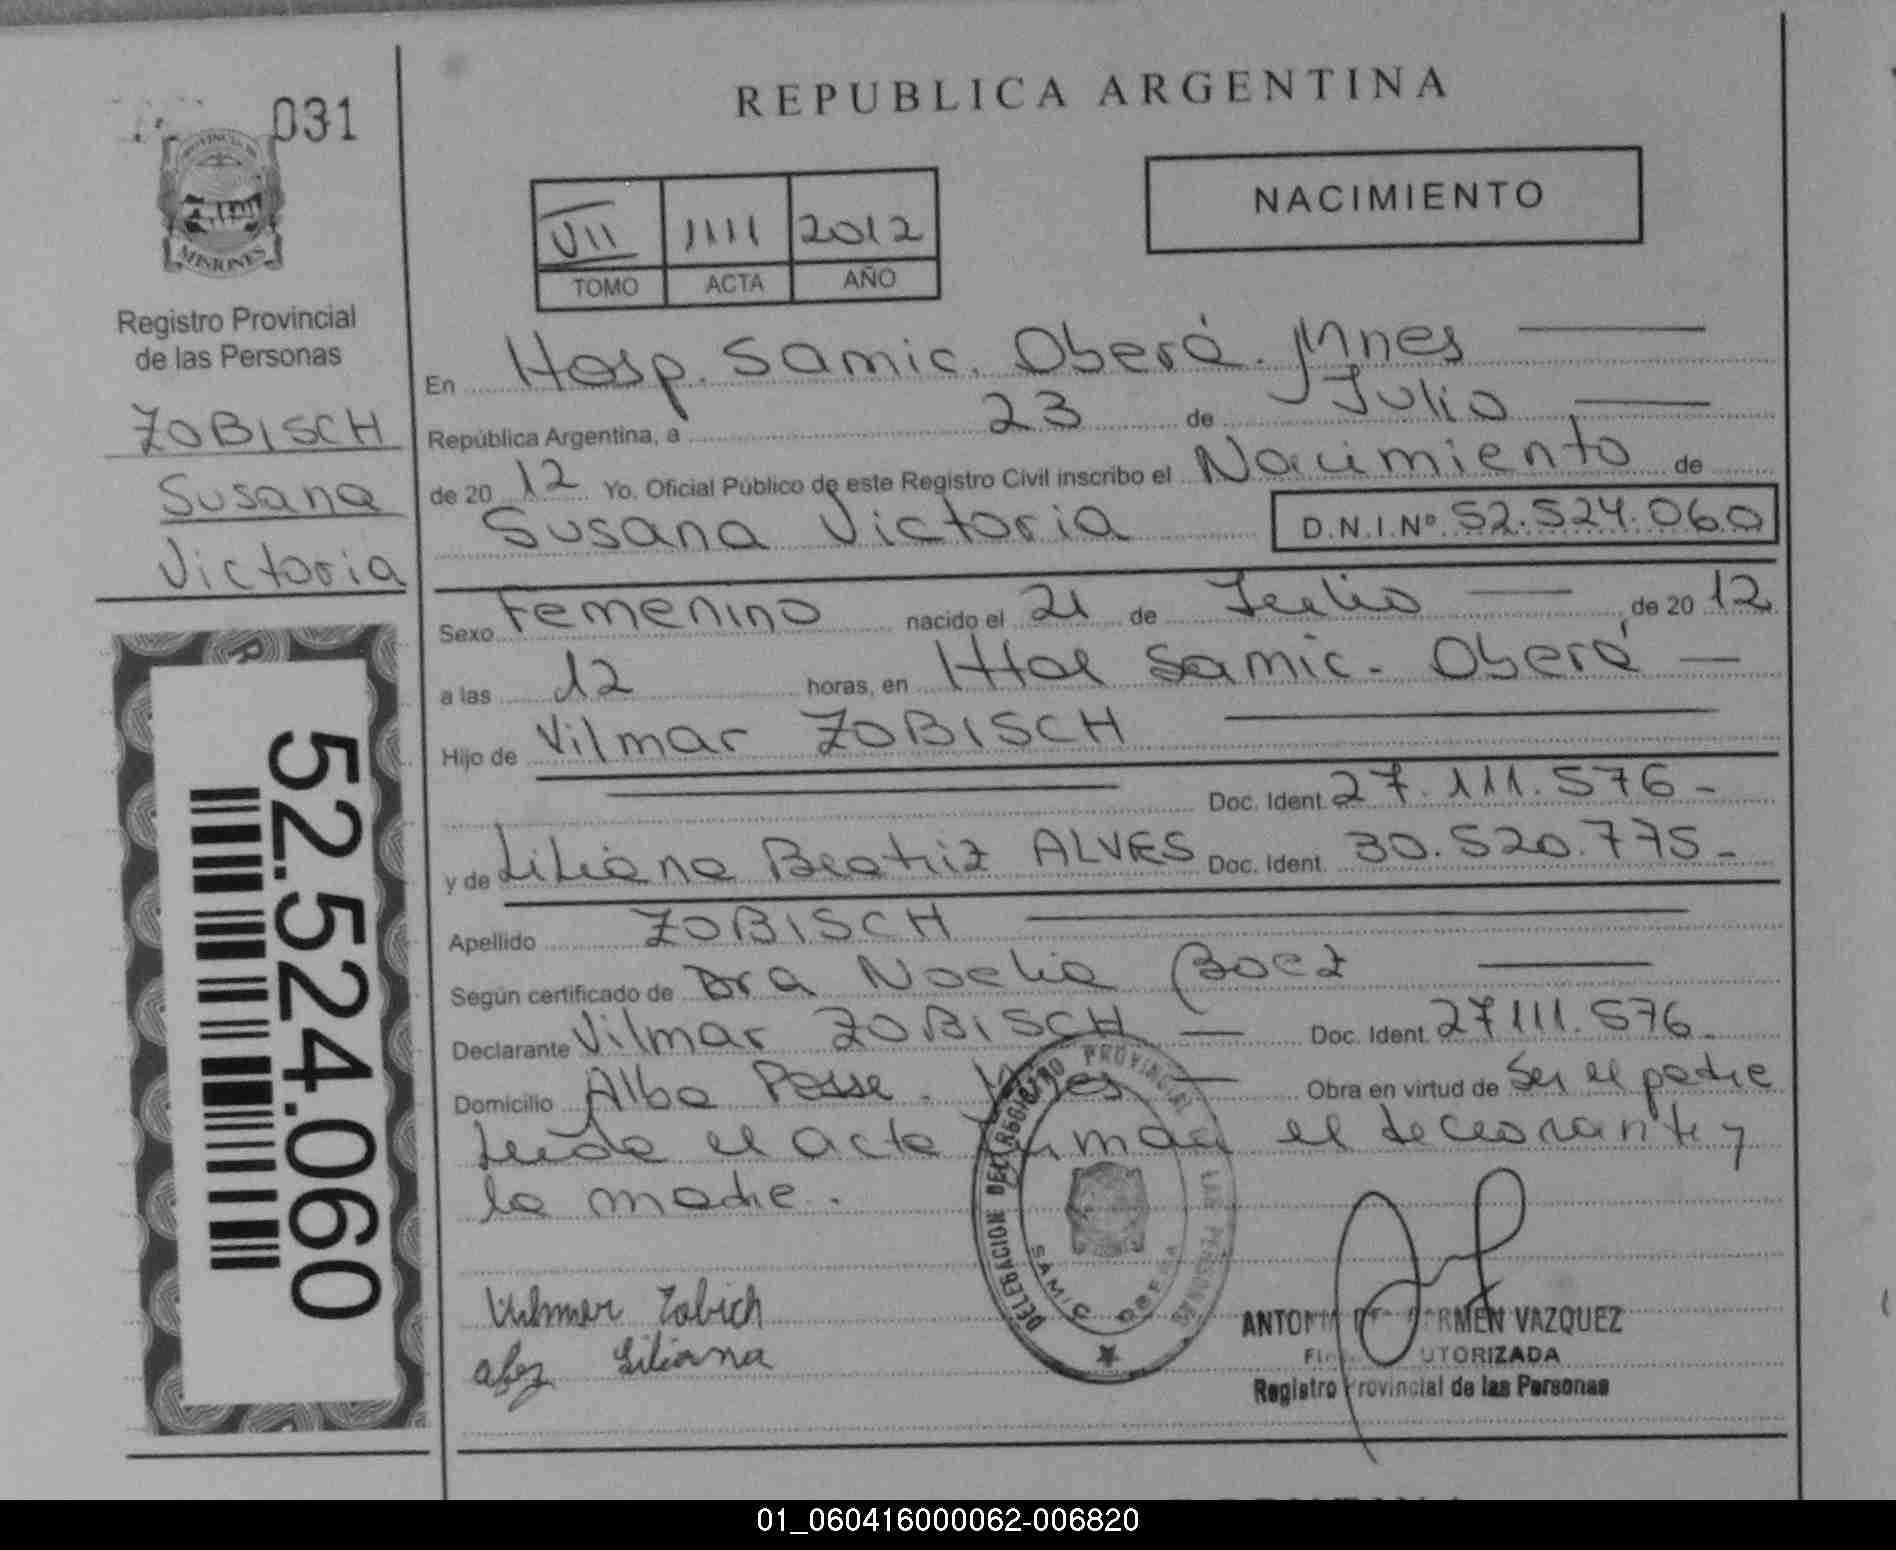 031
PROVINCIA DE
MISIONES
Registro Provincial
de las Personas
ZOBISCH
Susana
Victoria
52.524.060
REPUBLICA ARGENTINA
VII 1111 2012
TOMO ACTA AÑO
NACIMIENTO
En Hosp. Samic. Oberá. Mnes
República Argentina, a 23 de Julio
de 20 12 Yo. Oficial Público de este Registro Civil inscribo el Nacimiento de
Susana Victoria D.N.I.Nº 52.524.060
Sexo Femenino nacido el 21 de Julio de 20 12
a las 12 horas, en Htal Samic - Oberá
Hijo de Vilmar ZOBISCH
Doc. Ident. 27.111.576 -
y de Liliana Beatriz ALVES Doc. Ident. 30.520.775 -
Apellido ZOBISCH
Según certificado de Dra Noelia Boez
Declarante Vilmar ZOBISCH Doc. Ident. 27111.576
Domicilio Alba Posse. Mnes Obra en virtud de ser el padre
Leída el acta firman el declarante y
la madre.
DELEGACION DEL REGISTRO PROVINCIAL DE LAS PERSONAS
SAMIC OBERA
Vilmar Zobich
Liliana
ANTONIA DEL CARMEN VAZQUEZ
FIRMA AUTORIZADA
Registro Provincial de las Personas
01_060416000062-006820